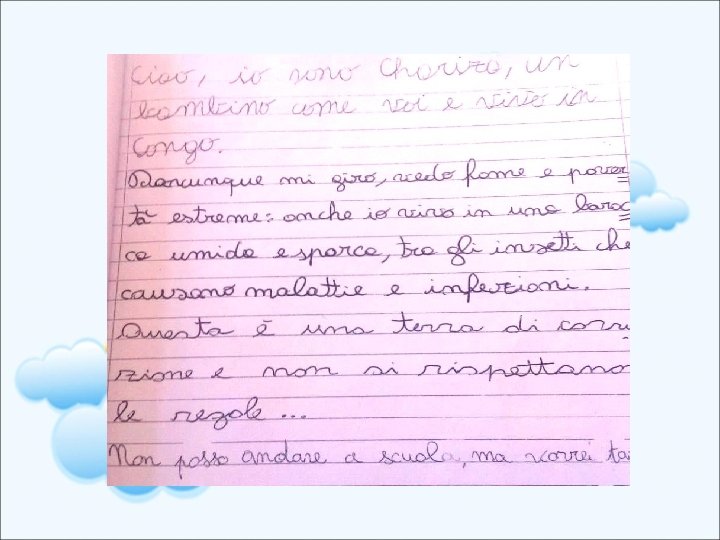 Ciao, io sono Charizo, un
bambino come voi e vivo in
Congo.
Dovunque mi giro, vedo fame e pover
tà estreme: anche io vivo in una barac
ca umida e sporca, tra gli insetti che
causano malattie e infezioni.
Questa è una terra di corru
zione e non si rispettano
le regole...
Non posso andare a scuola, ma vorrei ta